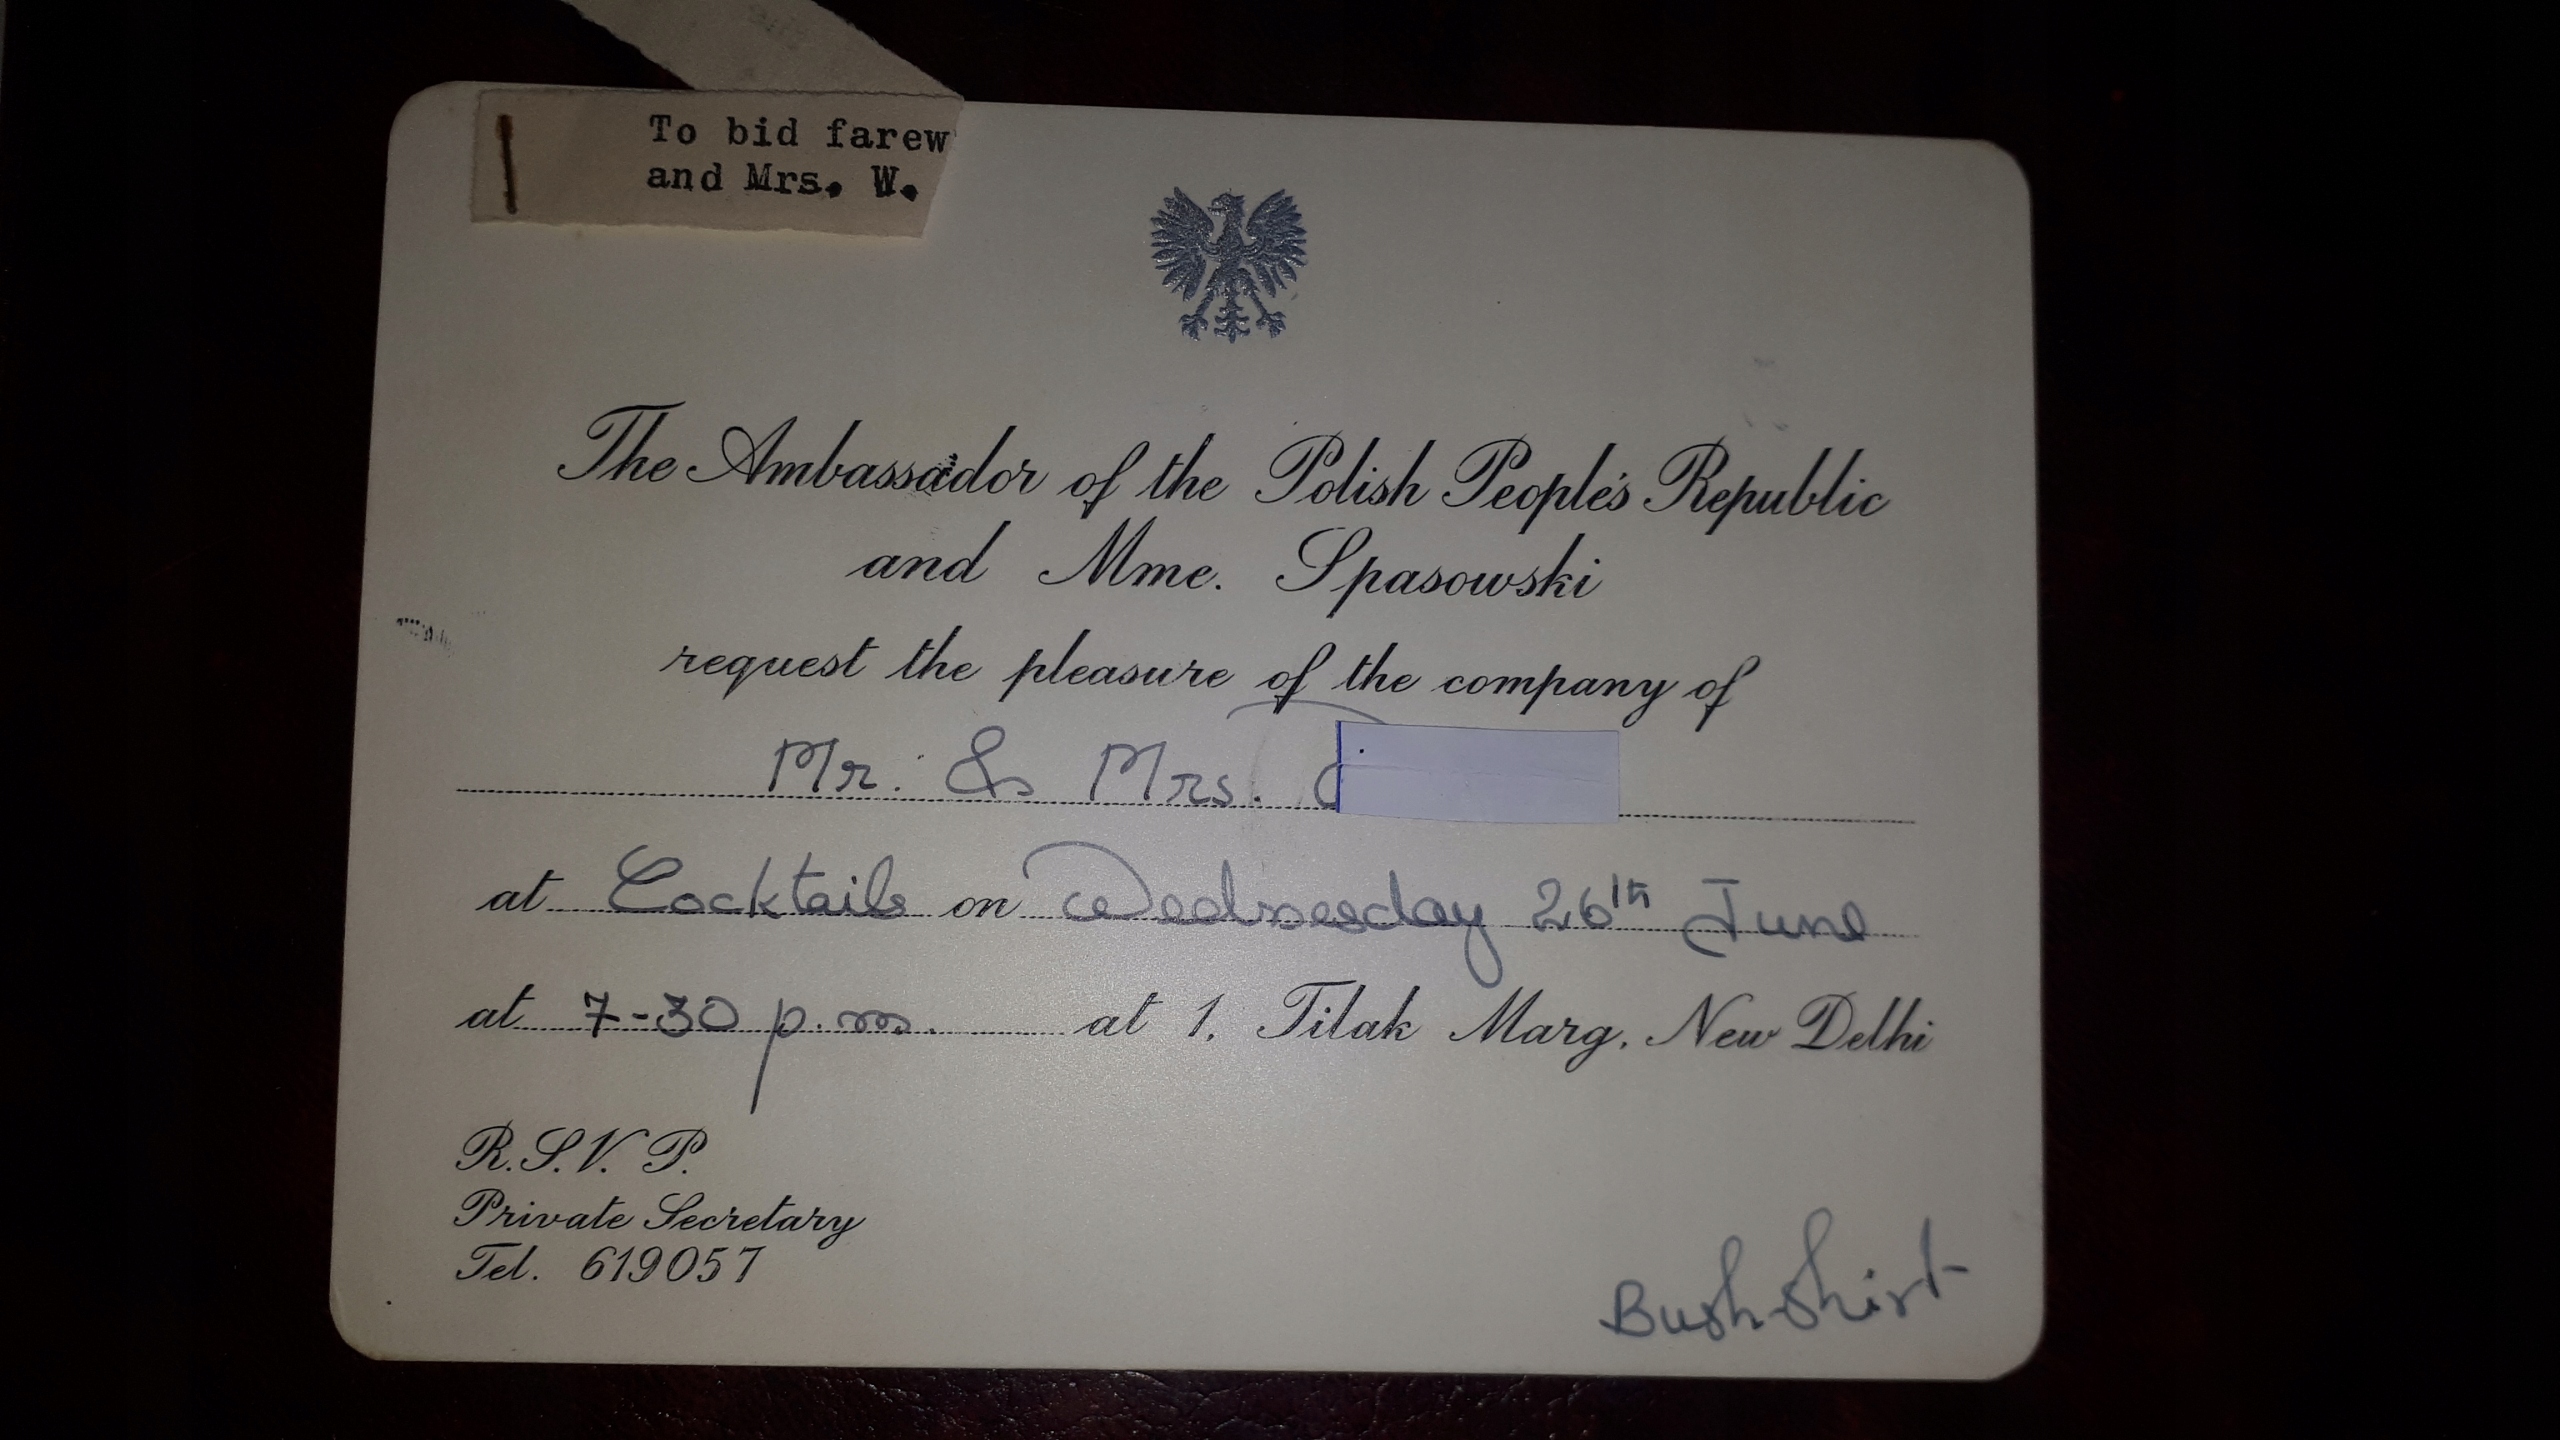 To bid farew
and Mrs. W.
The Ambassador of the Polish People's Republic
and Mme. Spasowski
request the pleasure of the company of
Mr. & Mrs.
at Cocktails on Wednesday 26th June
at 7-30 p.m. at 1, Tilak Marg, New Delhi
R.S.V.P.
Private Secretary
Tel. 619057
Bush-Shirt